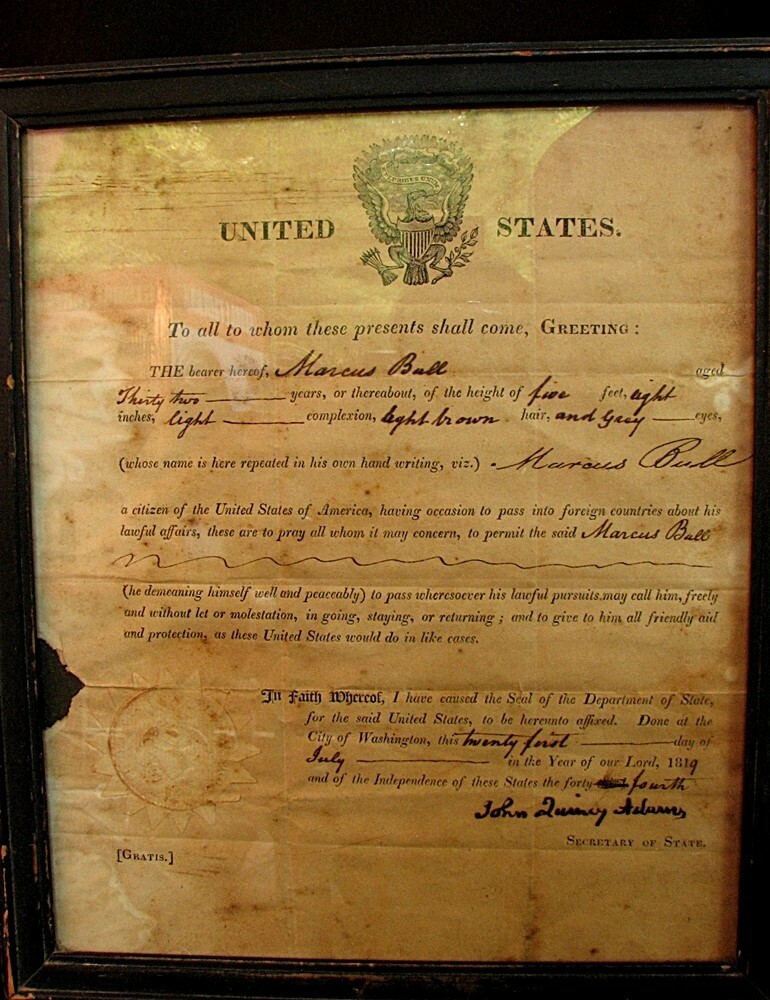 E PLURIBUS UNUM
UNITED STATES.
To all to whom these presents shall come, GREETING:
THE bearer hereof, Marcus Bull aged
Thirty two years, or thereabout, of the height of five feet, eight
inches, light complexion, light brown hair, and Grey eyes,
(whose name is here repeated in his own hand writing, viz.) Marcus Bull
a citizen of the United States of America, having occasion to pass into foreign countries about his
lawful affairs, these are to pray all whom it may concern, to permit the said Marcus Bull
(he demeaning himself well and peaceably) to pass wheresoever his lawful pursuits may call him, freely
and without let or molestation, in going, staying, or returning; and to give to him all friendly aid
and protection, as these United States would do in like cases.
In Faith Whereof, I have caused the Seal of the Department of State,
for the said United States, to be hereunto affixed. Done at the
City of Washington, this twenty first day of
July in the Year of our Lord, 1819
and of the Independence of these States the forty fourth
John Quincy Adams
SECRETARY OF STATE.
[GRATIS.]